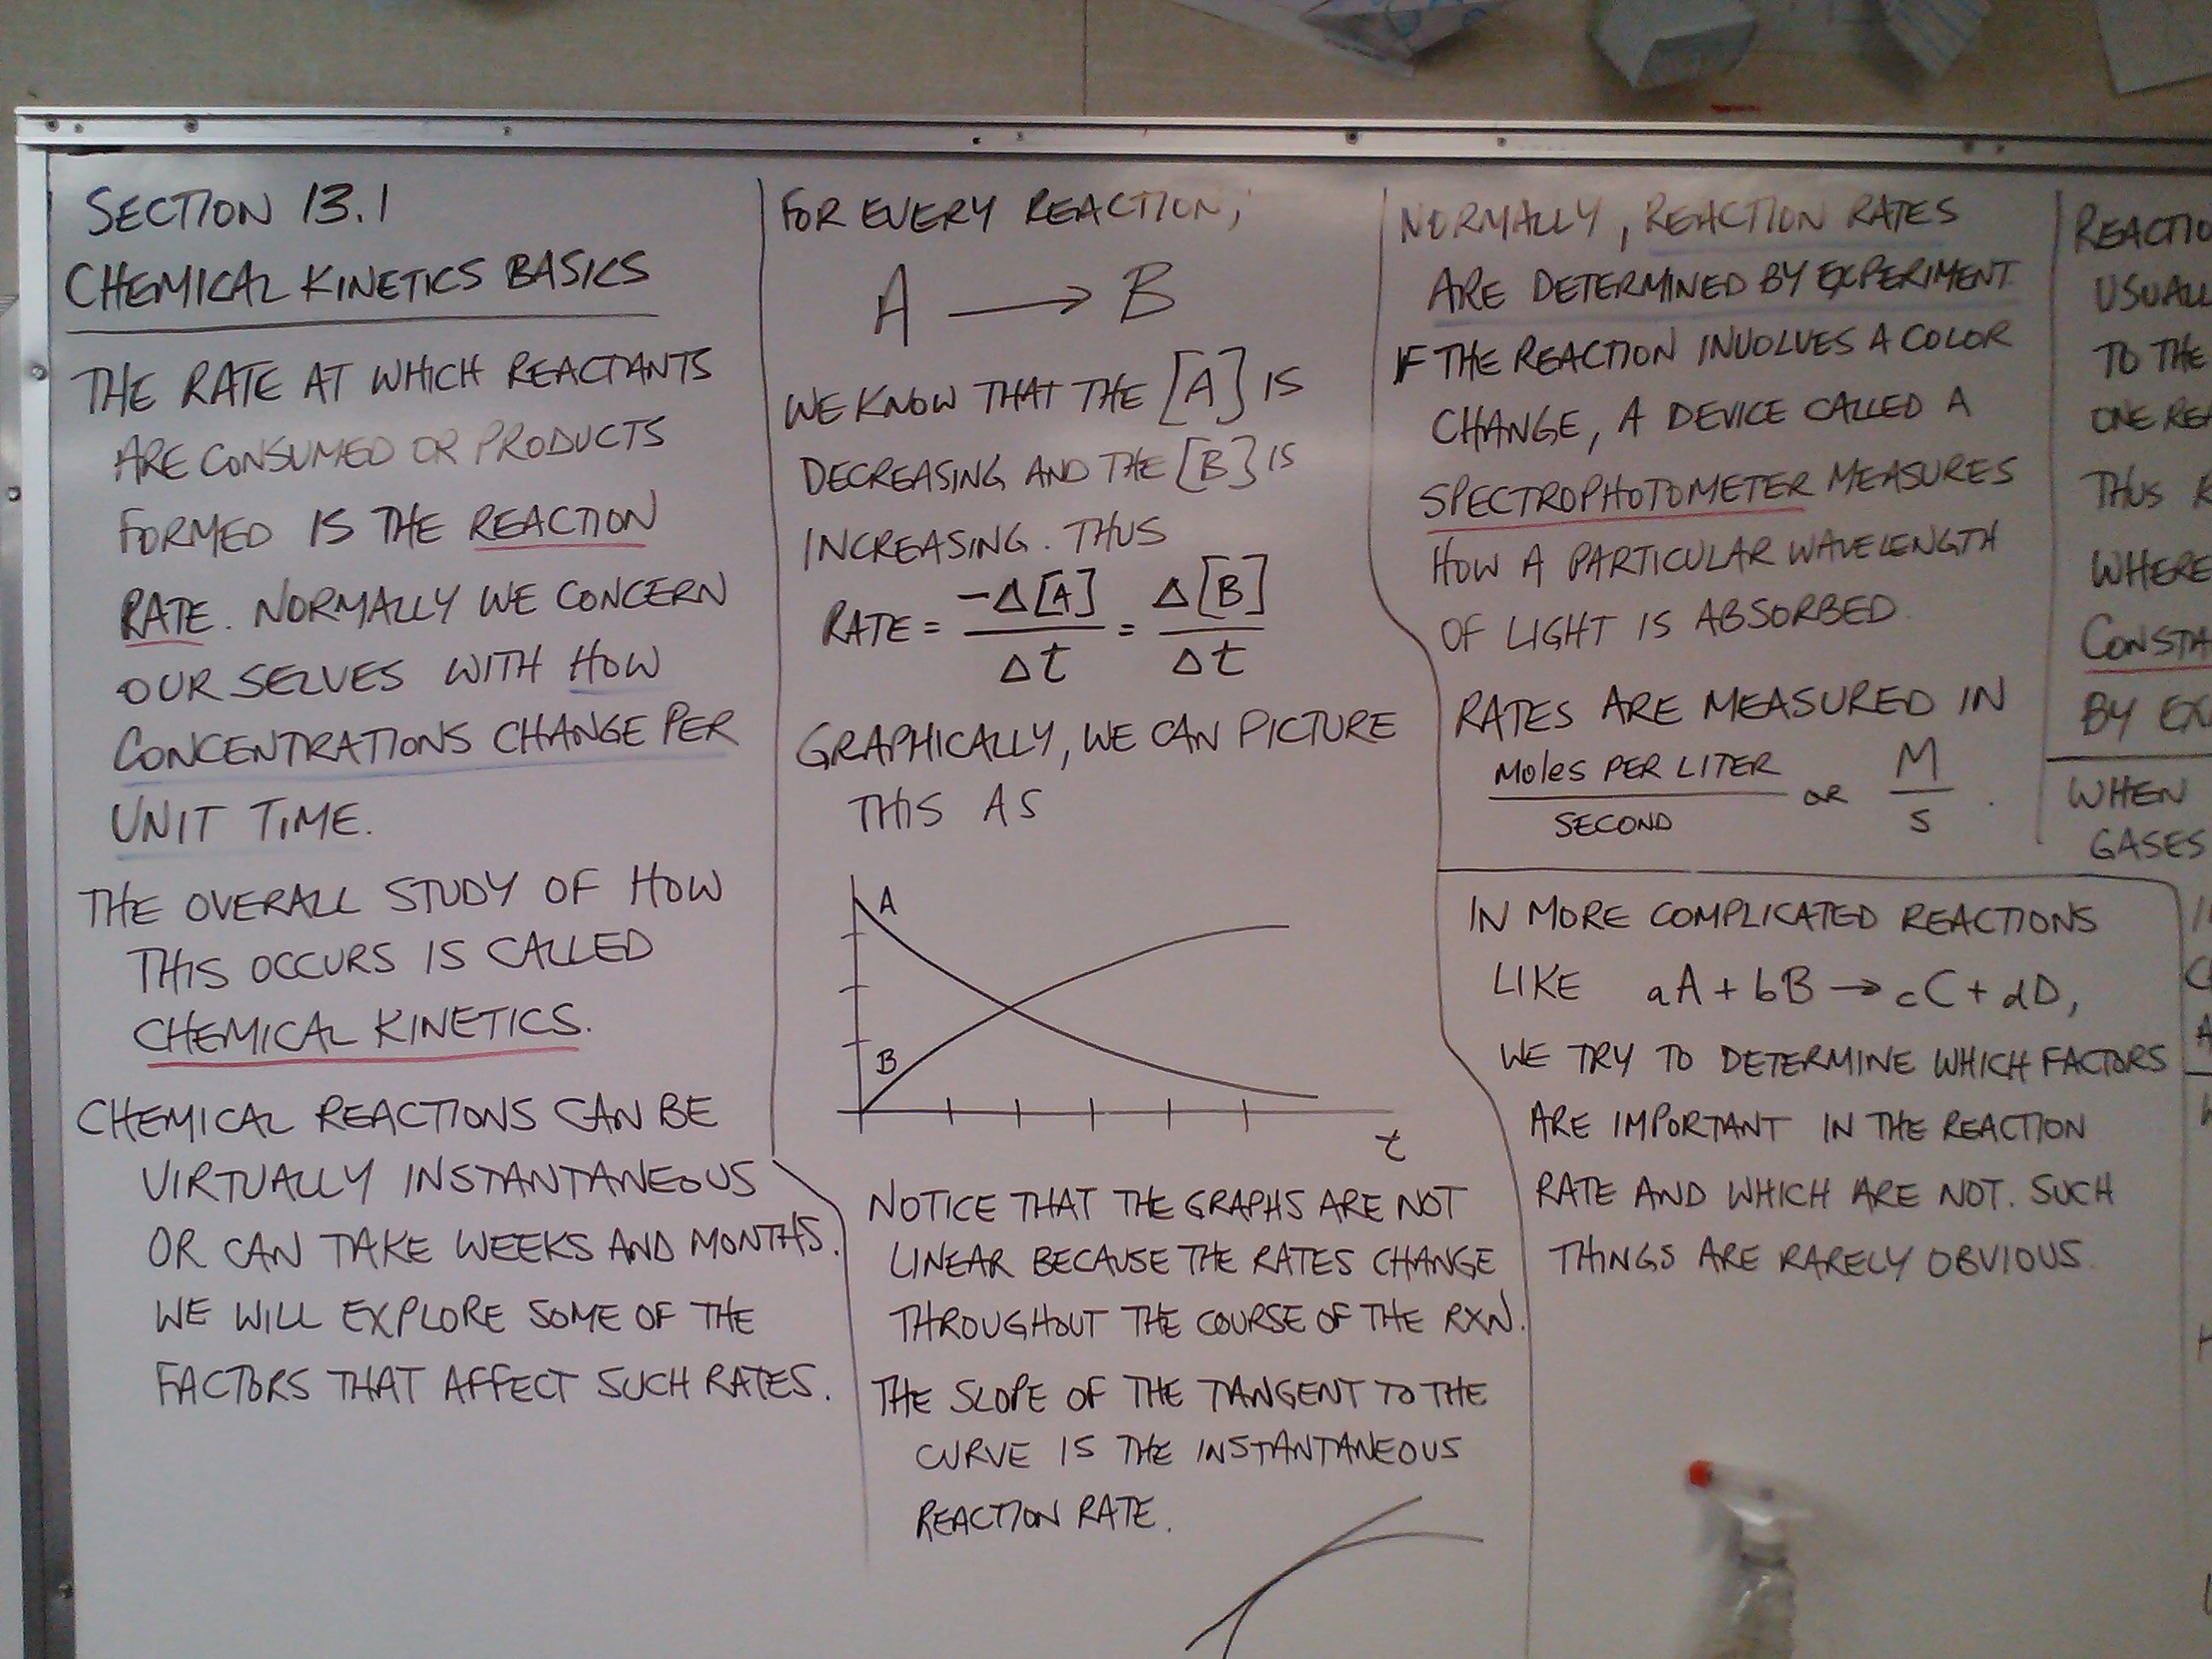 SECTION 13.1
CHEMICAL KINETICS BASICS
THE RATE AT WHICH REACTANTS
ARE CONSUMED OR PRODUCTS
FORMED IS THE REACTION
RATE. NORMALLY WE CONCERN
OUR SELVES WITH HOW
CONCENTRATIONS CHANGE PER
UNIT TIME.
THE OVERALL STUDY OF HOW
THIS OCCURS IS CALLED
CHEMICAL KINETICS.
CHEMICAL REACTIONS CAN BE
VIRTUALLY INSTANTANEOUS
OR CAN TAKE WEEKS AND MONTHS.
WE WILL EXPLORE SOME OF THE
FACTORS THAT AFFECT SUCH RATES.
FOR EVERY REACTION,
A → B
WE KNOW THAT THE [A] IS
DECREASING AND THE [B] IS
INCREASING. THUS
RATE = -Δ[A]/Δt = Δ[B]/Δt
GRAPHICALLY, WE CAN PICTURE
THIS AS
A
B
t
NOTICE THAT THE GRAPHS ARE NOT
LINEAR BECAUSE THE RATES CHANGE
THROUGHOUT THE COURSE OF THE RXN.
THE SLOPE OF THE TANGENT TO THE
CURVE IS THE INSTANTANEOUS
REACTION RATE.
NORMALLY, REACTION RATES
ARE DETERMINED BY EXPERIMENT.
IF THE REACTION INVOLVES A COLOR
CHANGE, A DEVICE CALLED A
SPECTROPHOTOMETER MEASURES
HOW A PARTICULAR WAVELENGTH
OF LIGHT IS ABSORBED.
RATES ARE MEASURED IN
Moles PER LITER/SECOND OR M/S.
IN MORE COMPLICATED REACTIONS
LIKE aA + bB → cC + dD,
WE TRY TO DETERMINE WHICH FACTORS
ARE IMPORTANT IN THE REACTION
RATE AND WHICH ARE NOT. SUCH
THINGS ARE RARELY OBVIOUS.
TO THE
THUS
WHERE
BY
WHEN
GASES